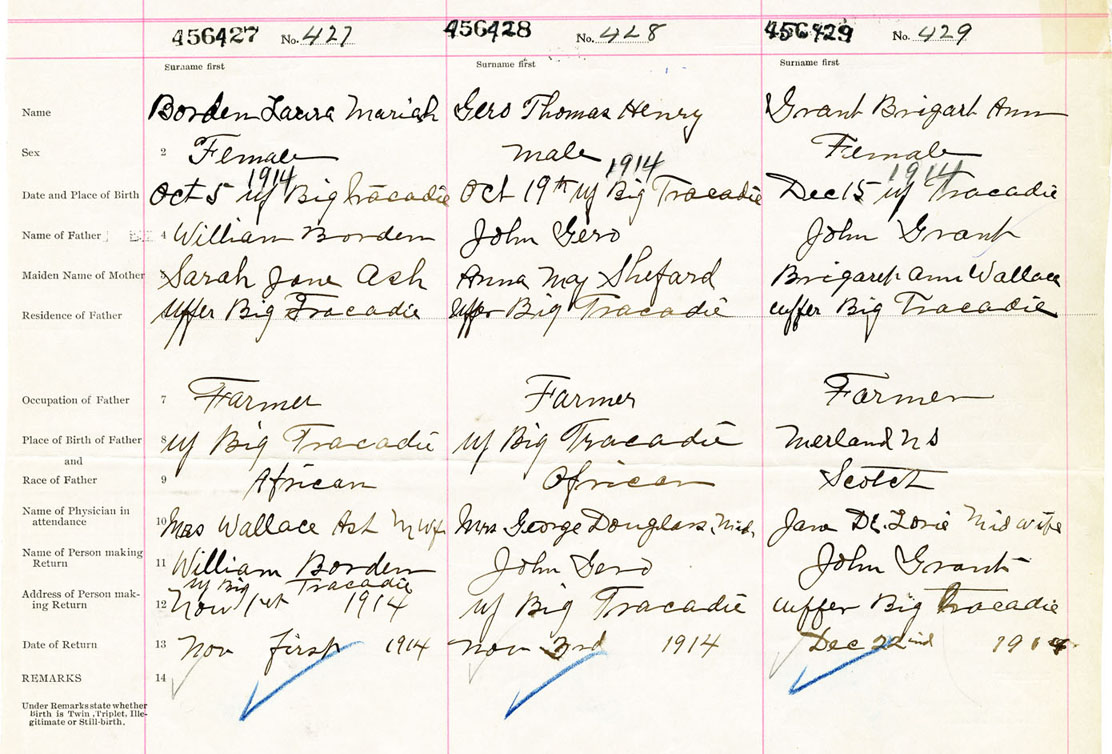 456427 No. 427 456428 No. 428 456429 No. 429
Surname first Surname first Surname first
Name Borden Laura Mariah Gero Thomas Henry Grant Brigart Ann
Sex 2 Female male Female
1914 1914 1914
Date and Place of Birth Oct 5 u/ Big Tracadie Oct 19th u/ Big Tracadie Dec 15 u/ Tracadie
Name of Father 4 William Borden John Gero John Grant
Maiden Name of Mother 5 Sarah Jane Ash Anna May Shefard Brigaret Ann Wallace
Residence of Father Upper Big Tracadie Upper Big Tracadie upper Big Tracadie
Occupation of Father 7 Farmer Farmer Farmer
Place of Birth of Father 8 u/ Big Tracadie u/ Big Tracadie Merland N S
and
Race of Father 9 African African Scotch
Name of Physician in
attendance 10 Mrs Wallace Ash M Wf Mrs George Douglass, Mid. Jane De Lorie Midwife
Name of Person making
Return 11 William Borden John Gero John Grant
u/ Big Tracadie
Address of Person mak-
ing Return 12 Nov 1st 1914 u/ Big Tracadie upper Big Tracadie
Date of Return 13 Nov first 1914 Nov 3rd 1914 Dec 22nd 1914
REMARKS 14
Under Remarks state whether
Birth is Twin, Triplet, Ille-
gitimate or Still-birth.